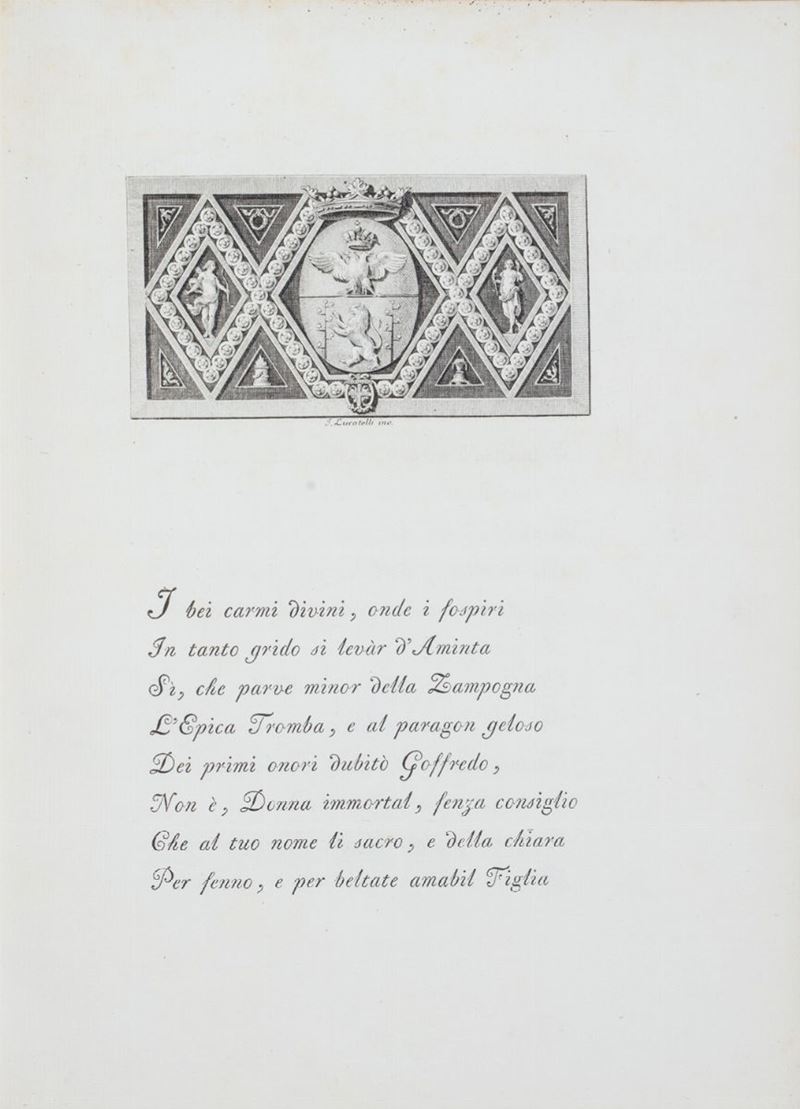 J. Lucatelli inc.
I bei carmi divini, onde i ſospiri
In tanto grido si levàr d'Aminta
Sì, che parve minor della Zampogna
L'Epica Tromba, e al paragon geloso
Dei primi onori dubitò Goffredo,
Non è, Donna immortal, ſenza consiglio
Che al tuo nome li sacro, e della chiara
Per ſenno, e per beltate amabil Figlia